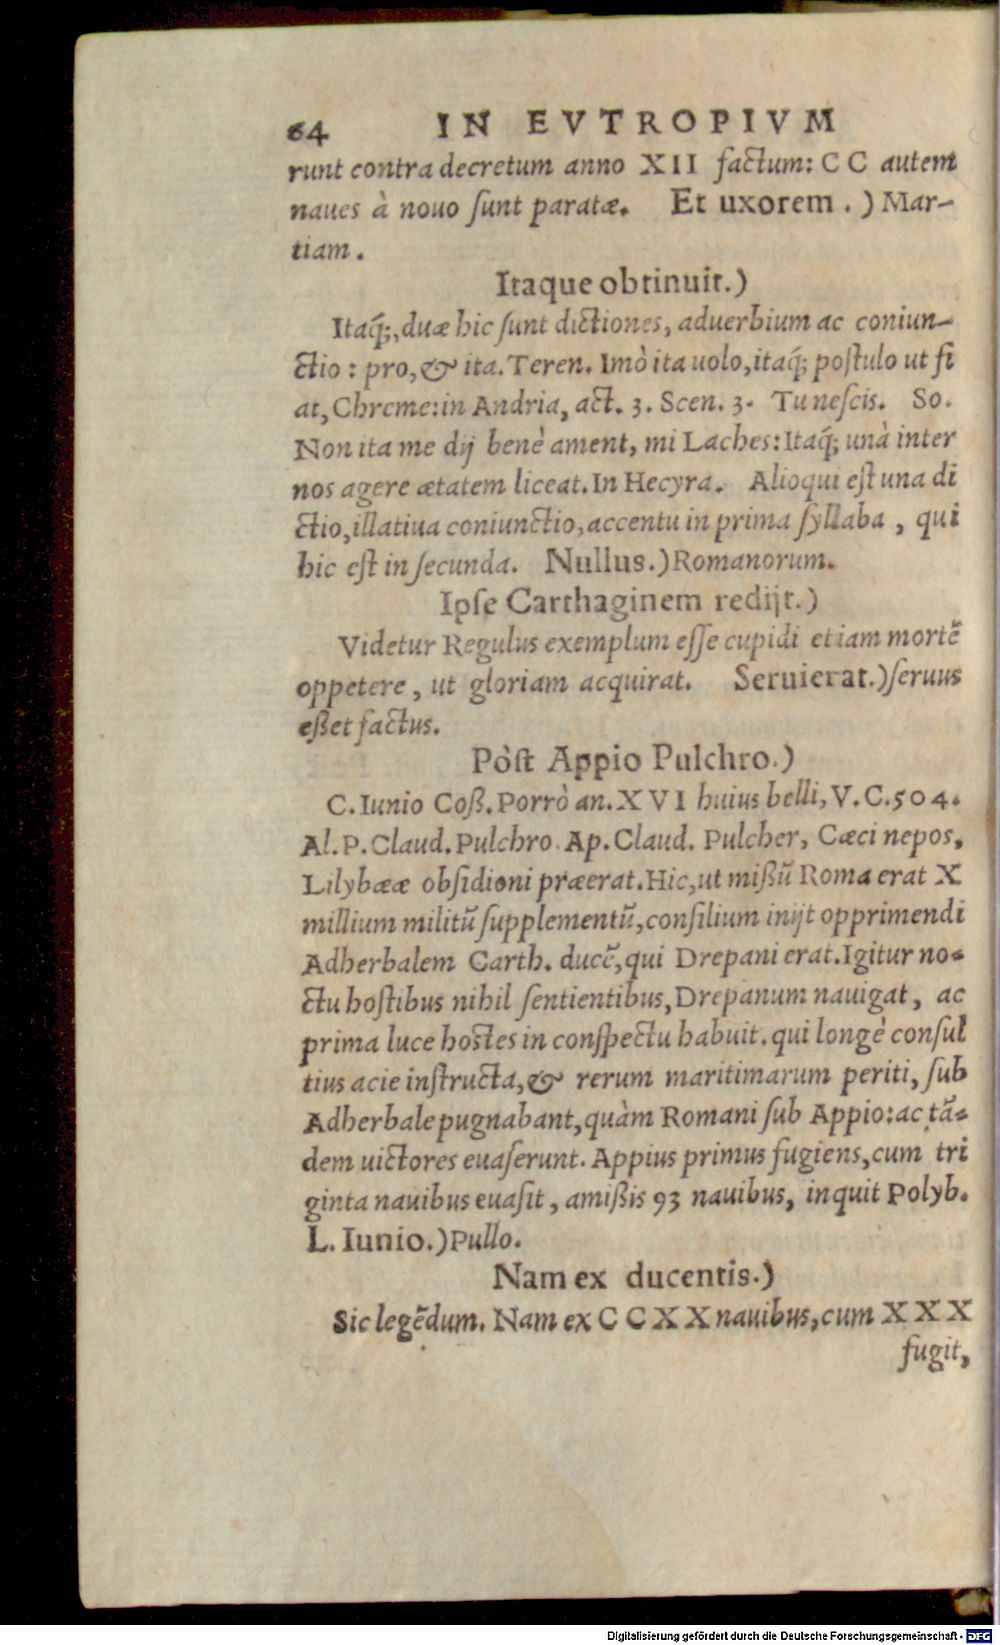 64 IN EVTROPIVM
runt contra decretum anno XII factum: CC autem
naues à nouo ſunt paratæ. Et uxorem . ) Mar-
tiam.
Itaque obtinuit.)
Itaq́;, duæ hic ſunt dictiones, aduerbium ac coniun-
ctio: pro, & ita. Teren. Imò ita uolo, itaq́; poſtulo ut fi
at, Chreme: in Andria, act. 3. Scen. 3. Tu neſcis. So.
Non ita me dij benè ament, mi Laches: Itaq́; unà inter
nos agere ætatem liceat. In Hecyra. Alioqui eſt una di
ctio, illatiua coniunctio, accentu in prima ſyllaba , qui
hic eſt in ſecunda. Nullus.) Romanorum.
Ipſe Carthaginem redijt.)
Videtur Regulus exemplum eſſe cupidi etiam mortē
oppetere, ut gloriam acquirat. Seruierat.) ſeruus
eßet factus.
Pòſt Appio Pulchro.)
C. Iunio Coß. Porrò an. XVI huius belli, V. C. 504.
Al. P. Claud. Pulchro. Ap. Claud. Pulcher, Cæci nepos,
Lilybææ obſidioni præerat. Hic, ut mißū Roma erat X
millium militū ſupplementū, conſilium inijt opprimendi
Adherbalem Carth. ducē, qui Drepani erat. Igitur no-
ctu hoſtibus nihil ſentientibus, Drepanum nauigat, ac
prima luce hoſtes in conſpectu habuit. qui longè conſul
tius acie inſtructa, & rerum maritimarum periti, ſub
Adherbale pugnabant, quàm Romani ſub Appio: ac tā-
dem uictores euaſerunt. Appius primus fugiens, cum tri
ginta nauibus euaſit, amißis 93 nauibus, inquit Polyb.
L. Iunio.) Pullo.
Nam ex ducentis.)
Sic legēdum. Nam ex CCXX nauibus, cum XXX
fugit,
Digitalisierung gefördert durch die Deutsche Forschungsgemeinschaft - DFG